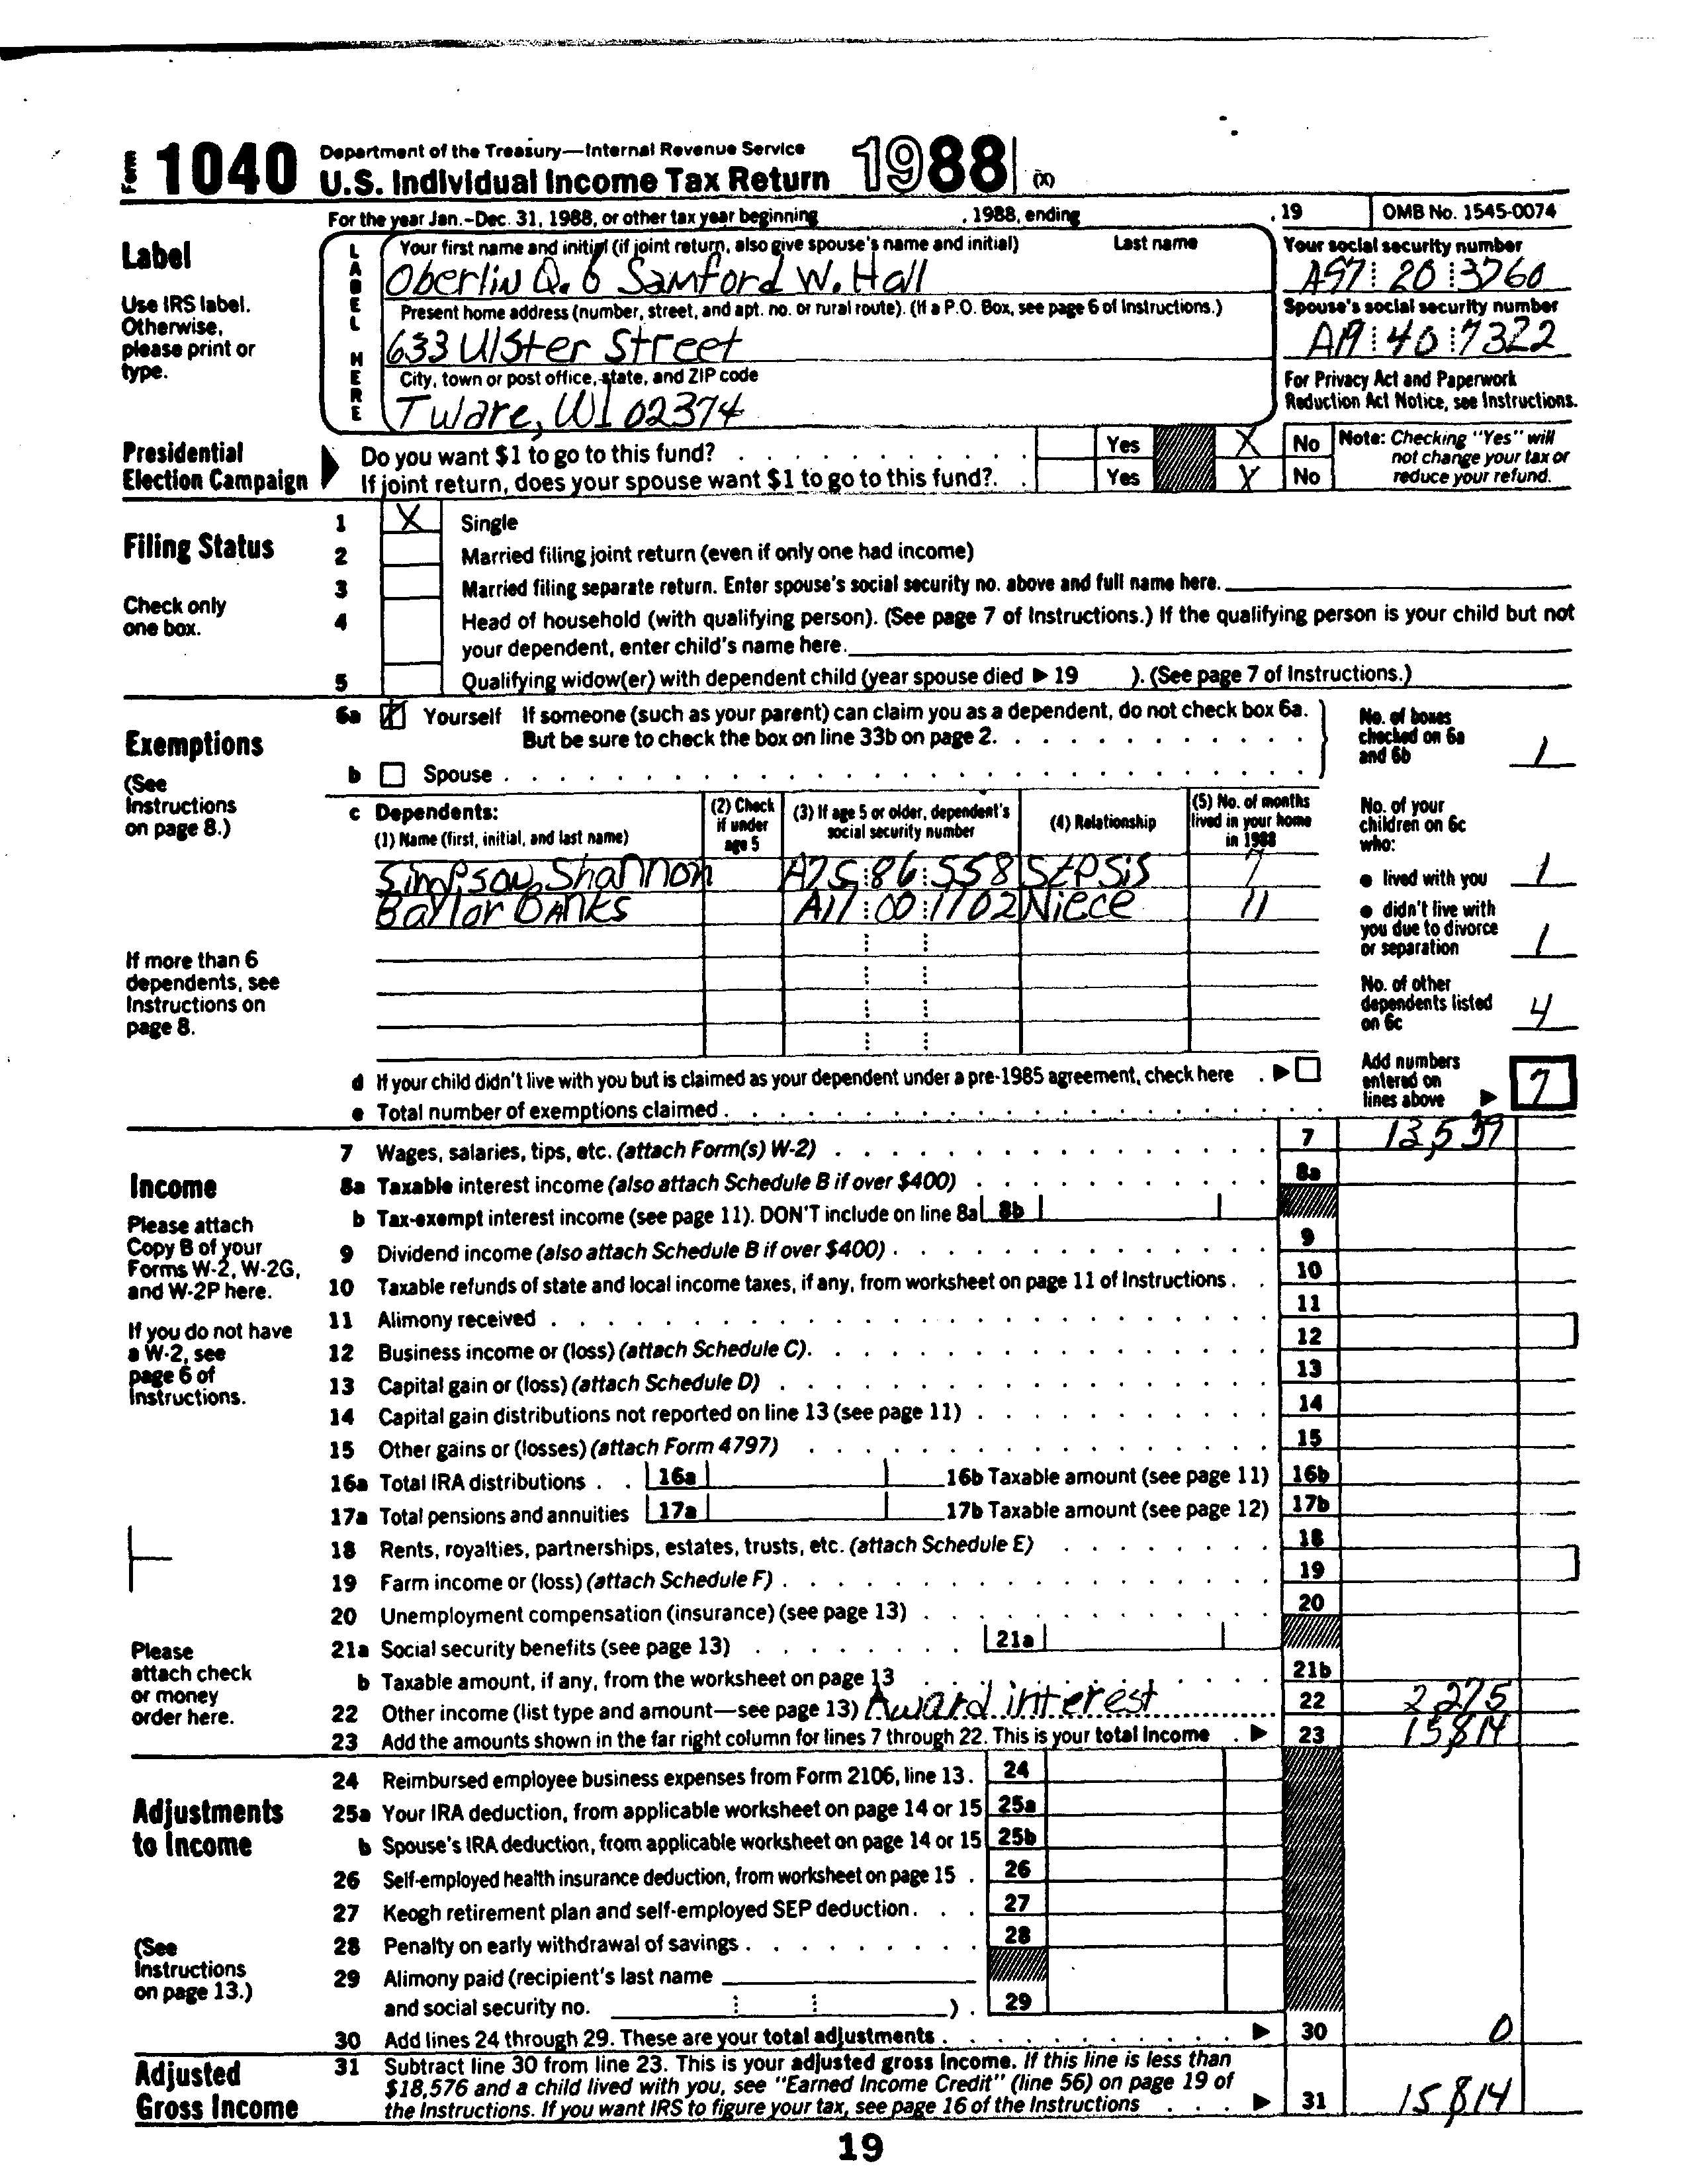 Form 1040 Department of the Treasury—Internal Revenue Service
U.S. Individual Income Tax Return 1988 (X)
For the year Jan.-Dec. 31, 1988, or other tax year beginning , 1988, ending , 19 OMB No. 1545-0074
Label
Use IRS label. Otherwise, please print or type.
LABEL HERE
Your first name and initial (if joint return, also give spouse's name and initial) Last name
Oberlin Q. & Samford W. Hall
Your social security number
A97 20 3760
Present home address (number, street, and apt. no. or rural route). (If a P.O. Box, see page 6 of Instructions.)
633 Ulster Street
Spouse's social security number
40 7322
City, town or post office, state, and ZIP code
Tware, WI 02374
For Privacy Act and Paperwork Reduction Act Notice, see Instructions.
Presidential Election Campaign
Do you want $1 to go to this fund? Yes X No
If joint return, does your spouse want $1 to go to this fund? Yes X No
Note: Checking "Yes" will not change your tax or reduce your refund.
Filing Status
Check only one box.
1 X Single
2 Married filing joint return (even if only one had income)
3 Married filing separate return. Enter spouse's social security no. above and full name here.
4 Head of household (with qualifying person). (See page 7 of Instructions.) If the qualifying person is your child but not
your dependent, enter child's name here.
5 Qualifying widow(er) with dependent child (year spouse died ▶ 19 ). (See page 7 of Instructions.)
Exemptions
(See Instructions on page 8.)
6a X Yourself If someone (such as your parent) can claim you as a dependent, do not check box 6a.
But be sure to check the box on line 33b on page 2.
b Spouse
No. of boxes checked on 6a and 6b 1
c Dependents:
(1) Name (first, initial, and last name)
(2) Check if under age 5
(3) If age 5 or older, dependent's social security number
(4) Relationship
(5) No. of months lived in your home in 1988
Simpson Shannon A75 86 558 StpSis 7
Baylor Banks A17 00 1702 Niece 11
No. of your children on 6c who:
● lived with you 1
● didn't live with you due to divorce or separation 1
No. of other dependents listed on 6c 4
If more than 6 dependents, see Instructions on page 8.
d If your child didn't live with you but is claimed as your dependent under a pre-1985 agreement, check here ▶
e Total number of exemptions claimed
Add numbers entered on lines above ▶ 7
Income
Please attach Copy B of your Forms W-2, W-2G, and W-2P here.
If you do not have a W-2, see page 6 of Instructions.
Please attach check or money order here.
7 Wages, salaries, tips, etc. (attach Form(s) W-2) 7 13,539
8a Taxable interest income (also attach Schedule B if over $400) 8a
b Tax-exempt interest income (see page 11). DON'T include on line 8a 8b
9 Dividend income (also attach Schedule B if over $400) 9
10 Taxable refunds of state and local income taxes, if any, from worksheet on page 11 of Instructions 10
11 Alimony received 11
12 Business income or (loss) (attach Schedule C) 12
13 Capital gain or (loss) (attach Schedule D) 13
14 Capital gain distributions not reported on line 13 (see page 11) 14
15 Other gains or (losses) (attach Form 4797) 15
16a Total IRA distributions 16a 16b Taxable amount (see page 11) 16b
17a Total pensions and annuities 17a 17b Taxable amount (see page 12) 17b
18 Rents, royalties, partnerships, estates, trusts, etc. (attach Schedule E) 18
19 Farm income or (loss) (attach Schedule F) 19
20 Unemployment compensation (insurance) (see page 13) 20
21a Social security benefits (see page 13) 21a
b Taxable amount, if any, from the worksheet on page 13 21b
22 Other income (list type and amount—see page 13) Award interest 22 2275
23 Add the amounts shown in the far right column for lines 7 through 22. This is your total income ▶ 23 15,814
Adjustments to Income
(See Instructions on page 13.)
24 Reimbursed employee business expenses from Form 2106, line 13. 24
25a Your IRA deduction, from applicable worksheet on page 14 or 15 25a
b Spouse's IRA deduction, from applicable worksheet on page 14 or 15 25b
26 Self-employed health insurance deduction, from worksheet on page 15 26
27 Keogh retirement plan and self-employed SEP deduction 27
28 Penalty on early withdrawal of savings 28
29 Alimony paid (recipient's last name
and social security no. ) 29
30 Add lines 24 through 29. These are your total adjustments ▶ 30 0
Adjusted Gross Income
31 Subtract line 30 from line 23. This is your adjusted gross income. If this line is less than
$18,576 and a child lived with you, see "Earned Income Credit" (line 56) on page 19 of
the Instructions. If you want IRS to figure your tax, see page 16 of the Instructions ▶ 31 15,814
19